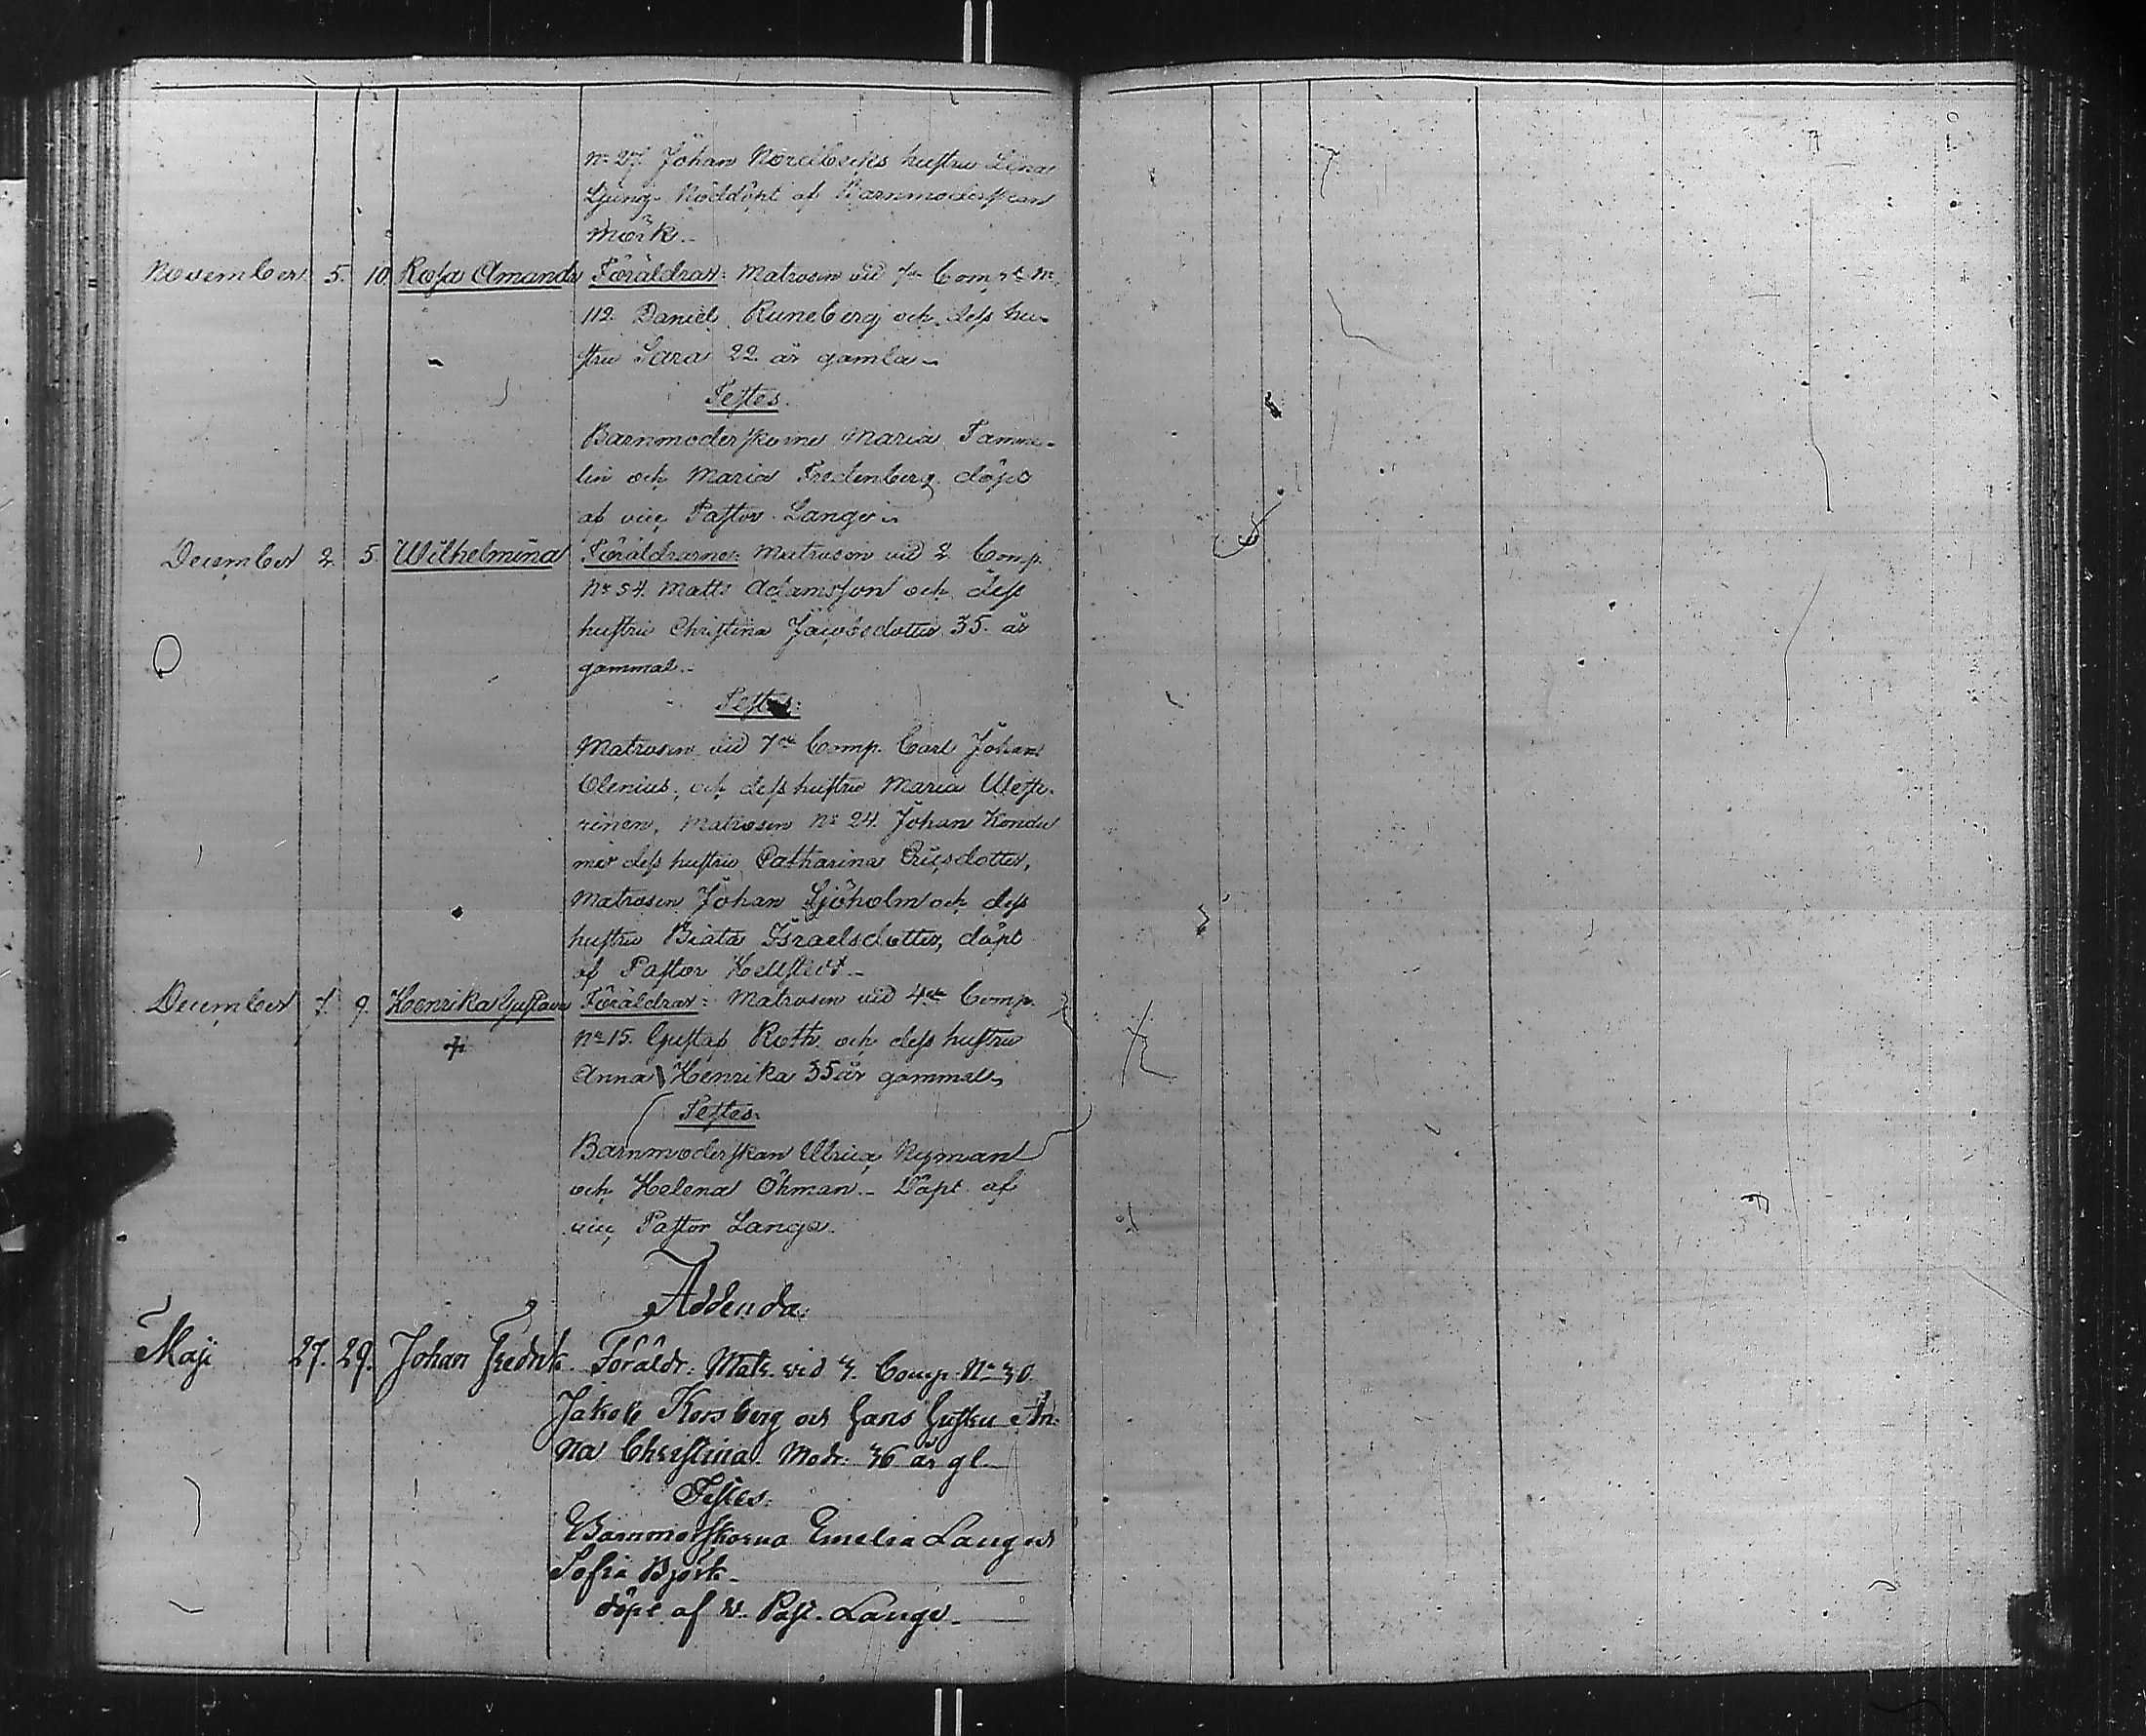 No 27. Johan Nordbecks hustru Lena
Ljung. Nöddöpt af Barnmoderskan
Mörk.
November 5. 10. Rosa Amanda Föräldrar: Matrosen vid 7de Comp. No
112. Daniel Runeberg och dess hu-
stru Sara 22 år gamla
Testes.
Barnmoderskorne Maria Tamme-
lin och Maria Fredenberg döpt
af vice Pastor Lange
December 2. 5. Wilhelmina Föräldrarne: Matrosen vid 2 Comp.
No 54. Matts Adamsson och dess
hustru Christina Jacobsdotter 35. år
gammal.
Testes:
Matrosen vid 7de Comp. Carl Johan
Olenius, och dess hustru Maria Weste-
rinen, Matrosen No 24. Johan
dess hustru Catharina Ericsdotter,
Matrosen Johan Sjöholm och dess
hustru Biata Israelsdotter, döpt
af Pastor Hellstedt
December 7. 9. Henrika Gustava Föräldrar: Matrosen vid 4de Comp.
No 15. Gustaf Roth och dess hustru
Anna Henrika 35 år gammal
Testes:
Barnmoderskan Ulrica Nyman
och Helena Öhman. Döpt af
vice Pastor Lange.
Addenda:
Maji 27. 29. Johan Fredrik. Föräldr: Matr. vid 3. Comp. No 30.
Jakob Korsberg och hans hustru An-
na Christina. Modr: 36 år gl.
Testes:
Barnmorskorna Emelia Lang och
Sofia Björk.
döpt af v. Past. Lange.